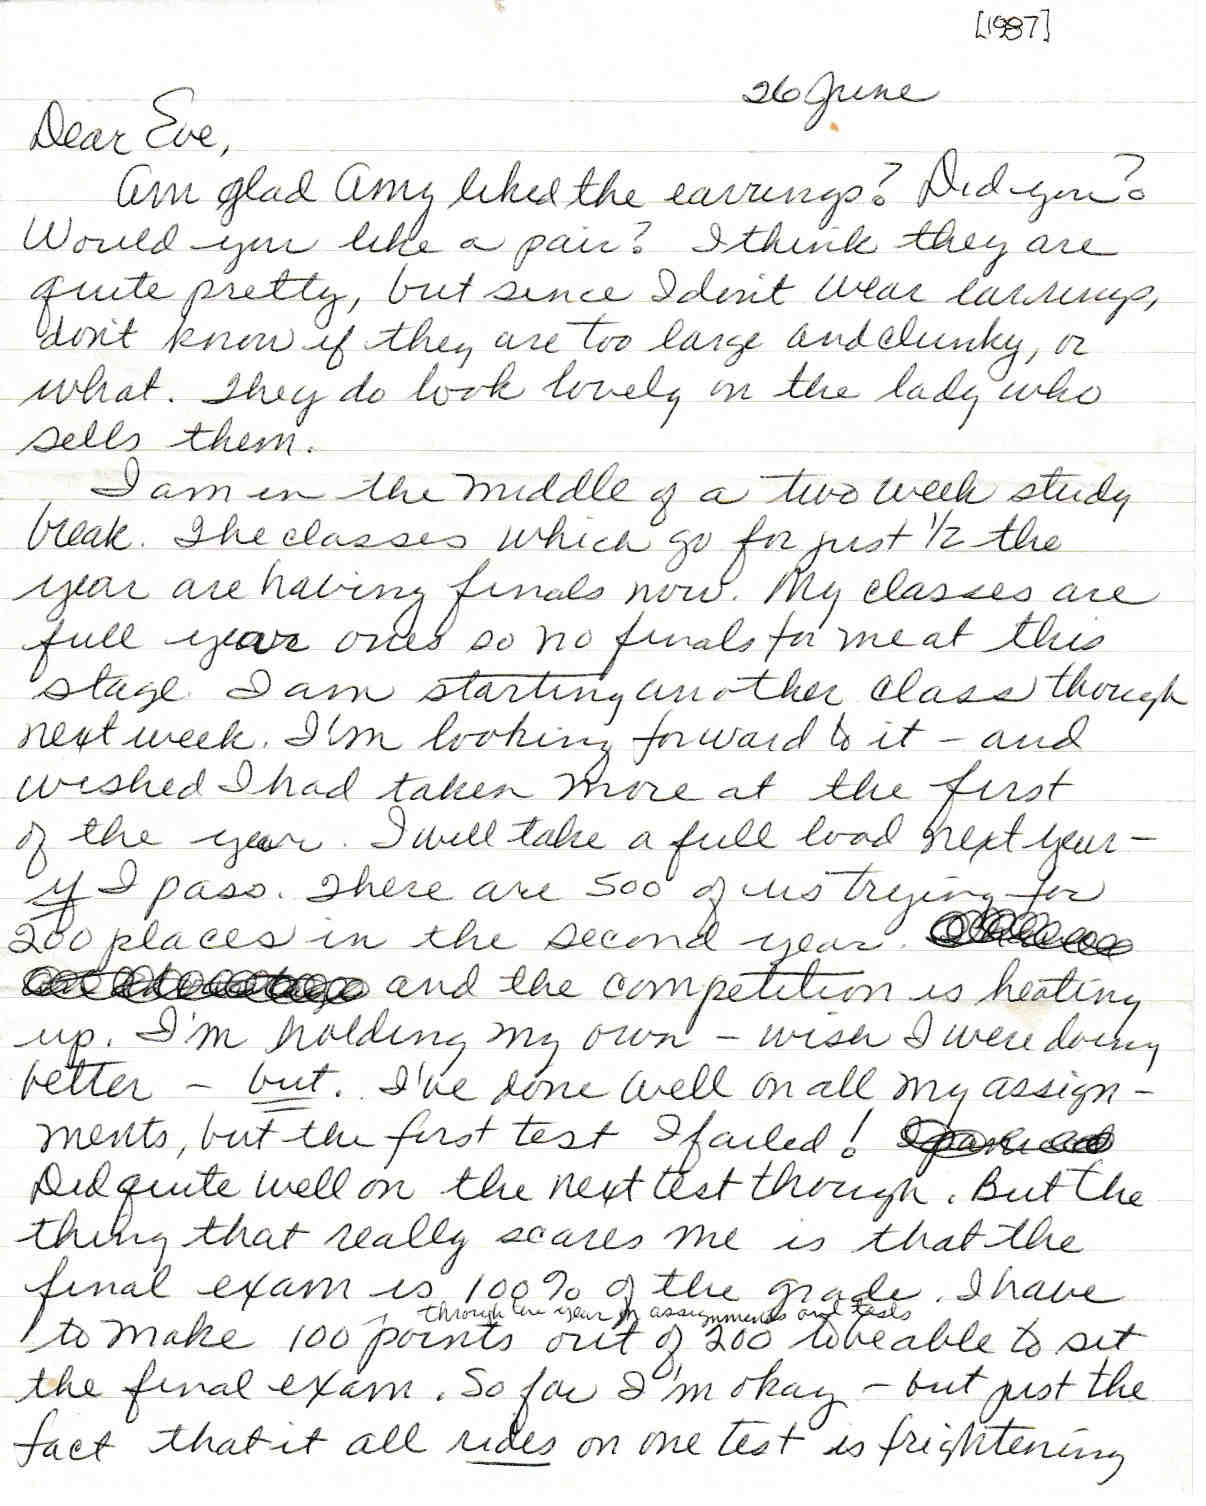 [1987]
26 June
Dear Eve,
Am glad Amy liked the earrings? Did you?
Would you like a pair? I think they are
quite pretty, but since I don't wear earrings,
don't know if they are too large and clunky, or
what. They do look lovely on the lady who
sells them.
I am in the middle of a two week study
break. The classes which go for just 1/2 the
year are having finals now. My classes are
full year ones so no finals for me at this
stage. I am starting another class though
next week. I'm looking forward to it - and
wished I had taken more at the first
of the year. I will take a full load next year -
if I pass. There are 500 of us trying for
200 places in the second year.
and the competition is heating
up. I'm holding my own - wish I were doing
better - but. I've done well on all my assign-
ments, but the first test I failed!
Did quite well on the next test though. But the
thing that really scares me is that the
final exam is 100% of the grade. I have
through the year on assignments and tests
to make 100 points out of 200 to be able to sit
the final exam. So far I'm okay - but just the
fact that it all rides on one test is frightening